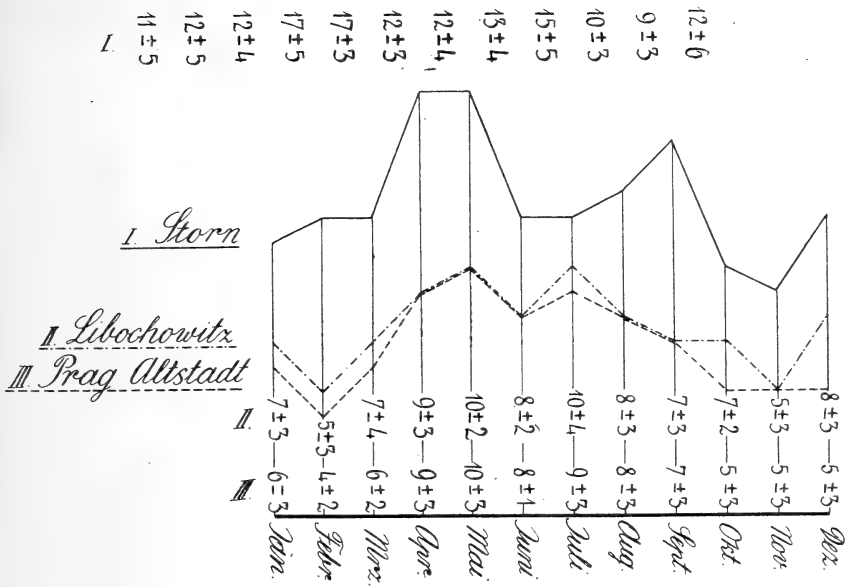 I. 11±5 12±5 12±4 17±5 17±3 12±3 12±4 13±4 15±5 10±3 9±3 12±6
I. Storn
II. Libochowitz
III. Prag Altstadt
II. 7±3 5±3 7±4 9±3 10±2 8±2 10±4 8±3 7±3 7±2 5±3 8±3
III. 6=3 4±2 6±2 9±3 10±3 8±1 9±3 8±3 7±3 5±3 5±3 5±3
Jän. Febr. Mrz. Apr. Mai Juni Juli Aug. Sept. Okt. Nov. Dez.